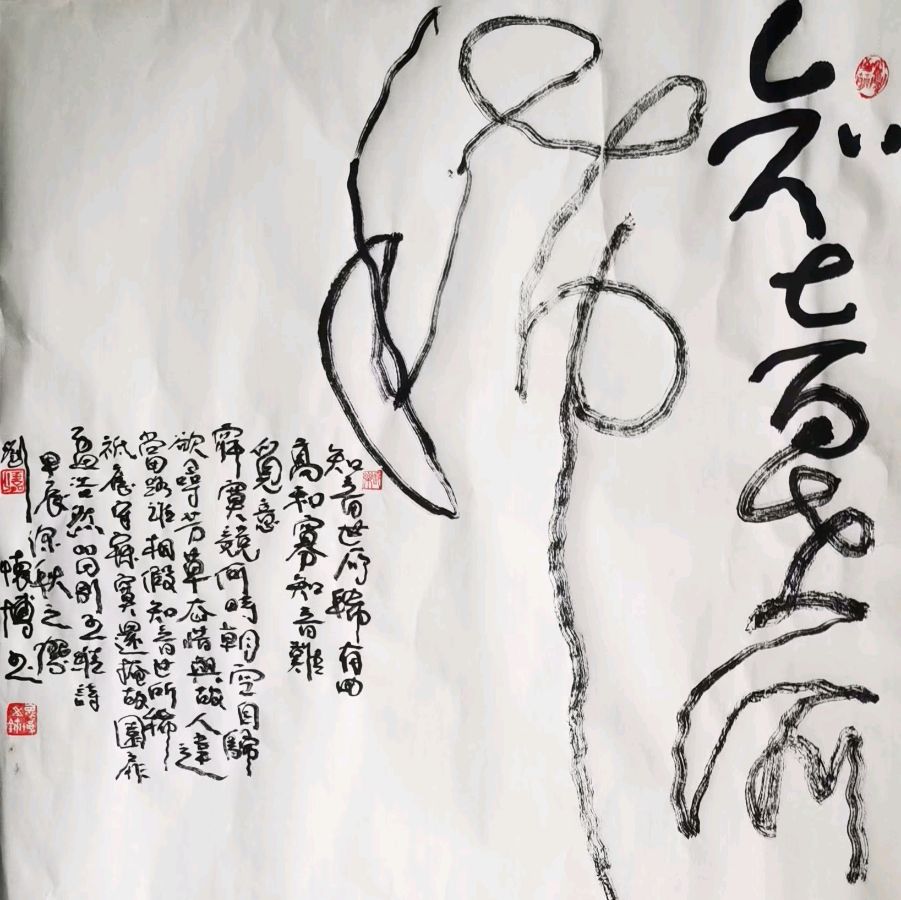 知音世所稀
知音世所稀有曲
高和寡知音難
覓意
寂寞競何時朝空自歸
欲尋芳草去惜與故人違
當路誰相假知音世所稀
祇應守寂寞還掩故園扉
孟浩然留別王維詩
甲辰深秋之際
劉懷博書